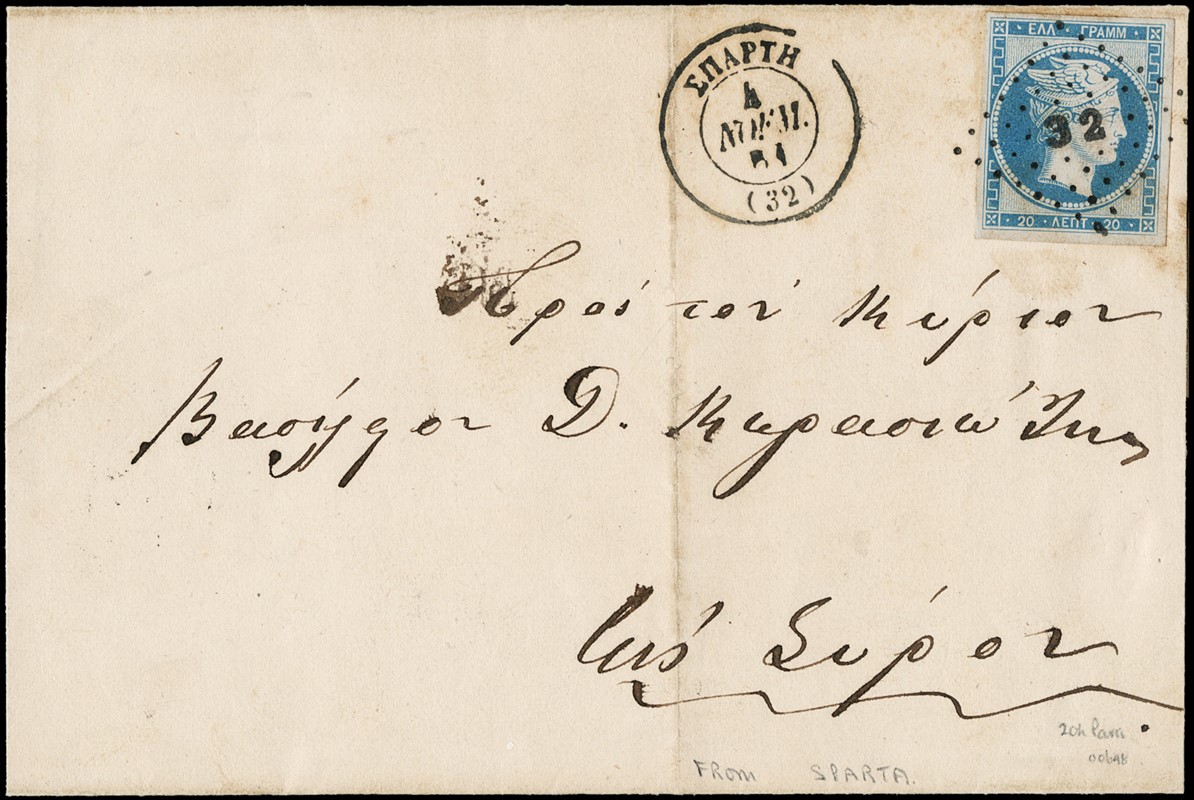 ΣΠΑΡΤΗ
4
ΝΟΕΜ.
61
(32)
ΕΛΛ · ΓΡΑΜΜ
32
20 · ΛΕΠΤ · 20
Πρὸς τὸν Κύριον
Βασίλειον Δ. Καρασιώτην
Εἰς Σύρον
20h Paris
FROM SPARTA.